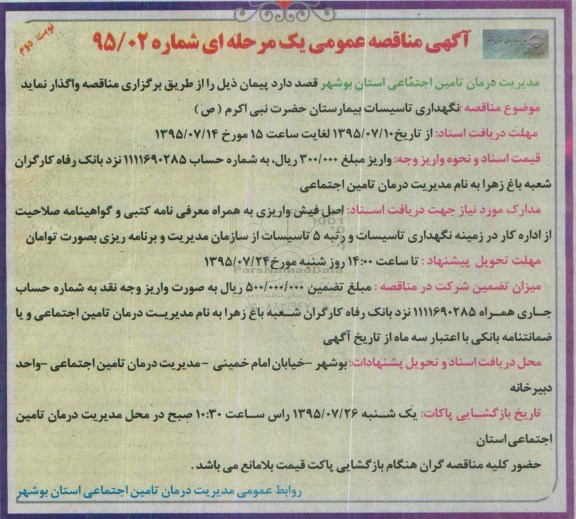 آگهی مناقصه عمومی یک مرحله ای شماره ۹۵/۰۲
نوبت دوم
مدیریت درمان تامین اجتماعی استان بوشهر قصد دارد پیمان ذیل را از طریق برگزاری مناقصه واگذار نماید
موضوع مناقصه :نگهداری تاسیسات بیمارستان حضرت نبی اکرم (ص)
مهلت دریافت اسناد: از تاریخ ۱۳۹۵/۰۷/۱۰ لغایت ساعت ۱۵ مورخ ۱۳۹۵/۰۷/۱۴
قیمت اسناد و نحوه واریز وجه: واریز مبلغ ۳۰۰/۰۰۰ ریال، به شماره حساب ۱۱۱۱۶۹۰۲۸۵ نزد بانک رفاه کارگران
شعبه باغ زهرا به نام مدیریت درمان تامین اجتماعی
مدارک مورد نیاز جهت دریافت اسناد: اصل فیش واریزی به همراه معرفی نامه کتبی و گواهینامه صلاحیت
از اداره کار در زمینه نگهداری تاسیسات و رتبه ۵ تاسیسات از سازمان مدیریت و برنامه ریزی بصورت توامان
مهلت تحویل پیشنهاد : تا ساعت ۱۴:۰۰ روز شنبه مورخ ۱۳۹۵/۰۷/۲۴
ParsNamadData
میزان تضمین شرکت در مناقصه : مبلغ تضمین ۵۰۰/۰۰۰/۰۰۰ ریال به صورت واریز وجه نقد به شماره حساب
جاری همراه ۱۱۱۱۶۹۰۲۸۵ نزد بانک رفاه کارگران شعبه باغ زهرا به نام مدیریت درمان تامین اجتماعی و یا
ضمانتنامه بانکی با اعتبار سه ماه از تاریخ آگهی
محل دریافت اسناد و تحویل پشنهادات: بوشهر –خیابان امام خمینی –مدیریت درمان تامین اجتماعی –واحد
دبیرخانه
تاریخ بازگشایی پاکات: یک شنبه ۱۳۹۵/۰۷/۲۶ راس ساعت ۱۰:۳۰ صبح در محل مدیریت درمان تامین
اجتماعی استان
حضور کلیه مناقصه گران هنگام بازگشایی پاکت قیمت بلامانع می باشد .
روابط عمومی مدیریت درمان تامین اجتماعی استان بوشهر